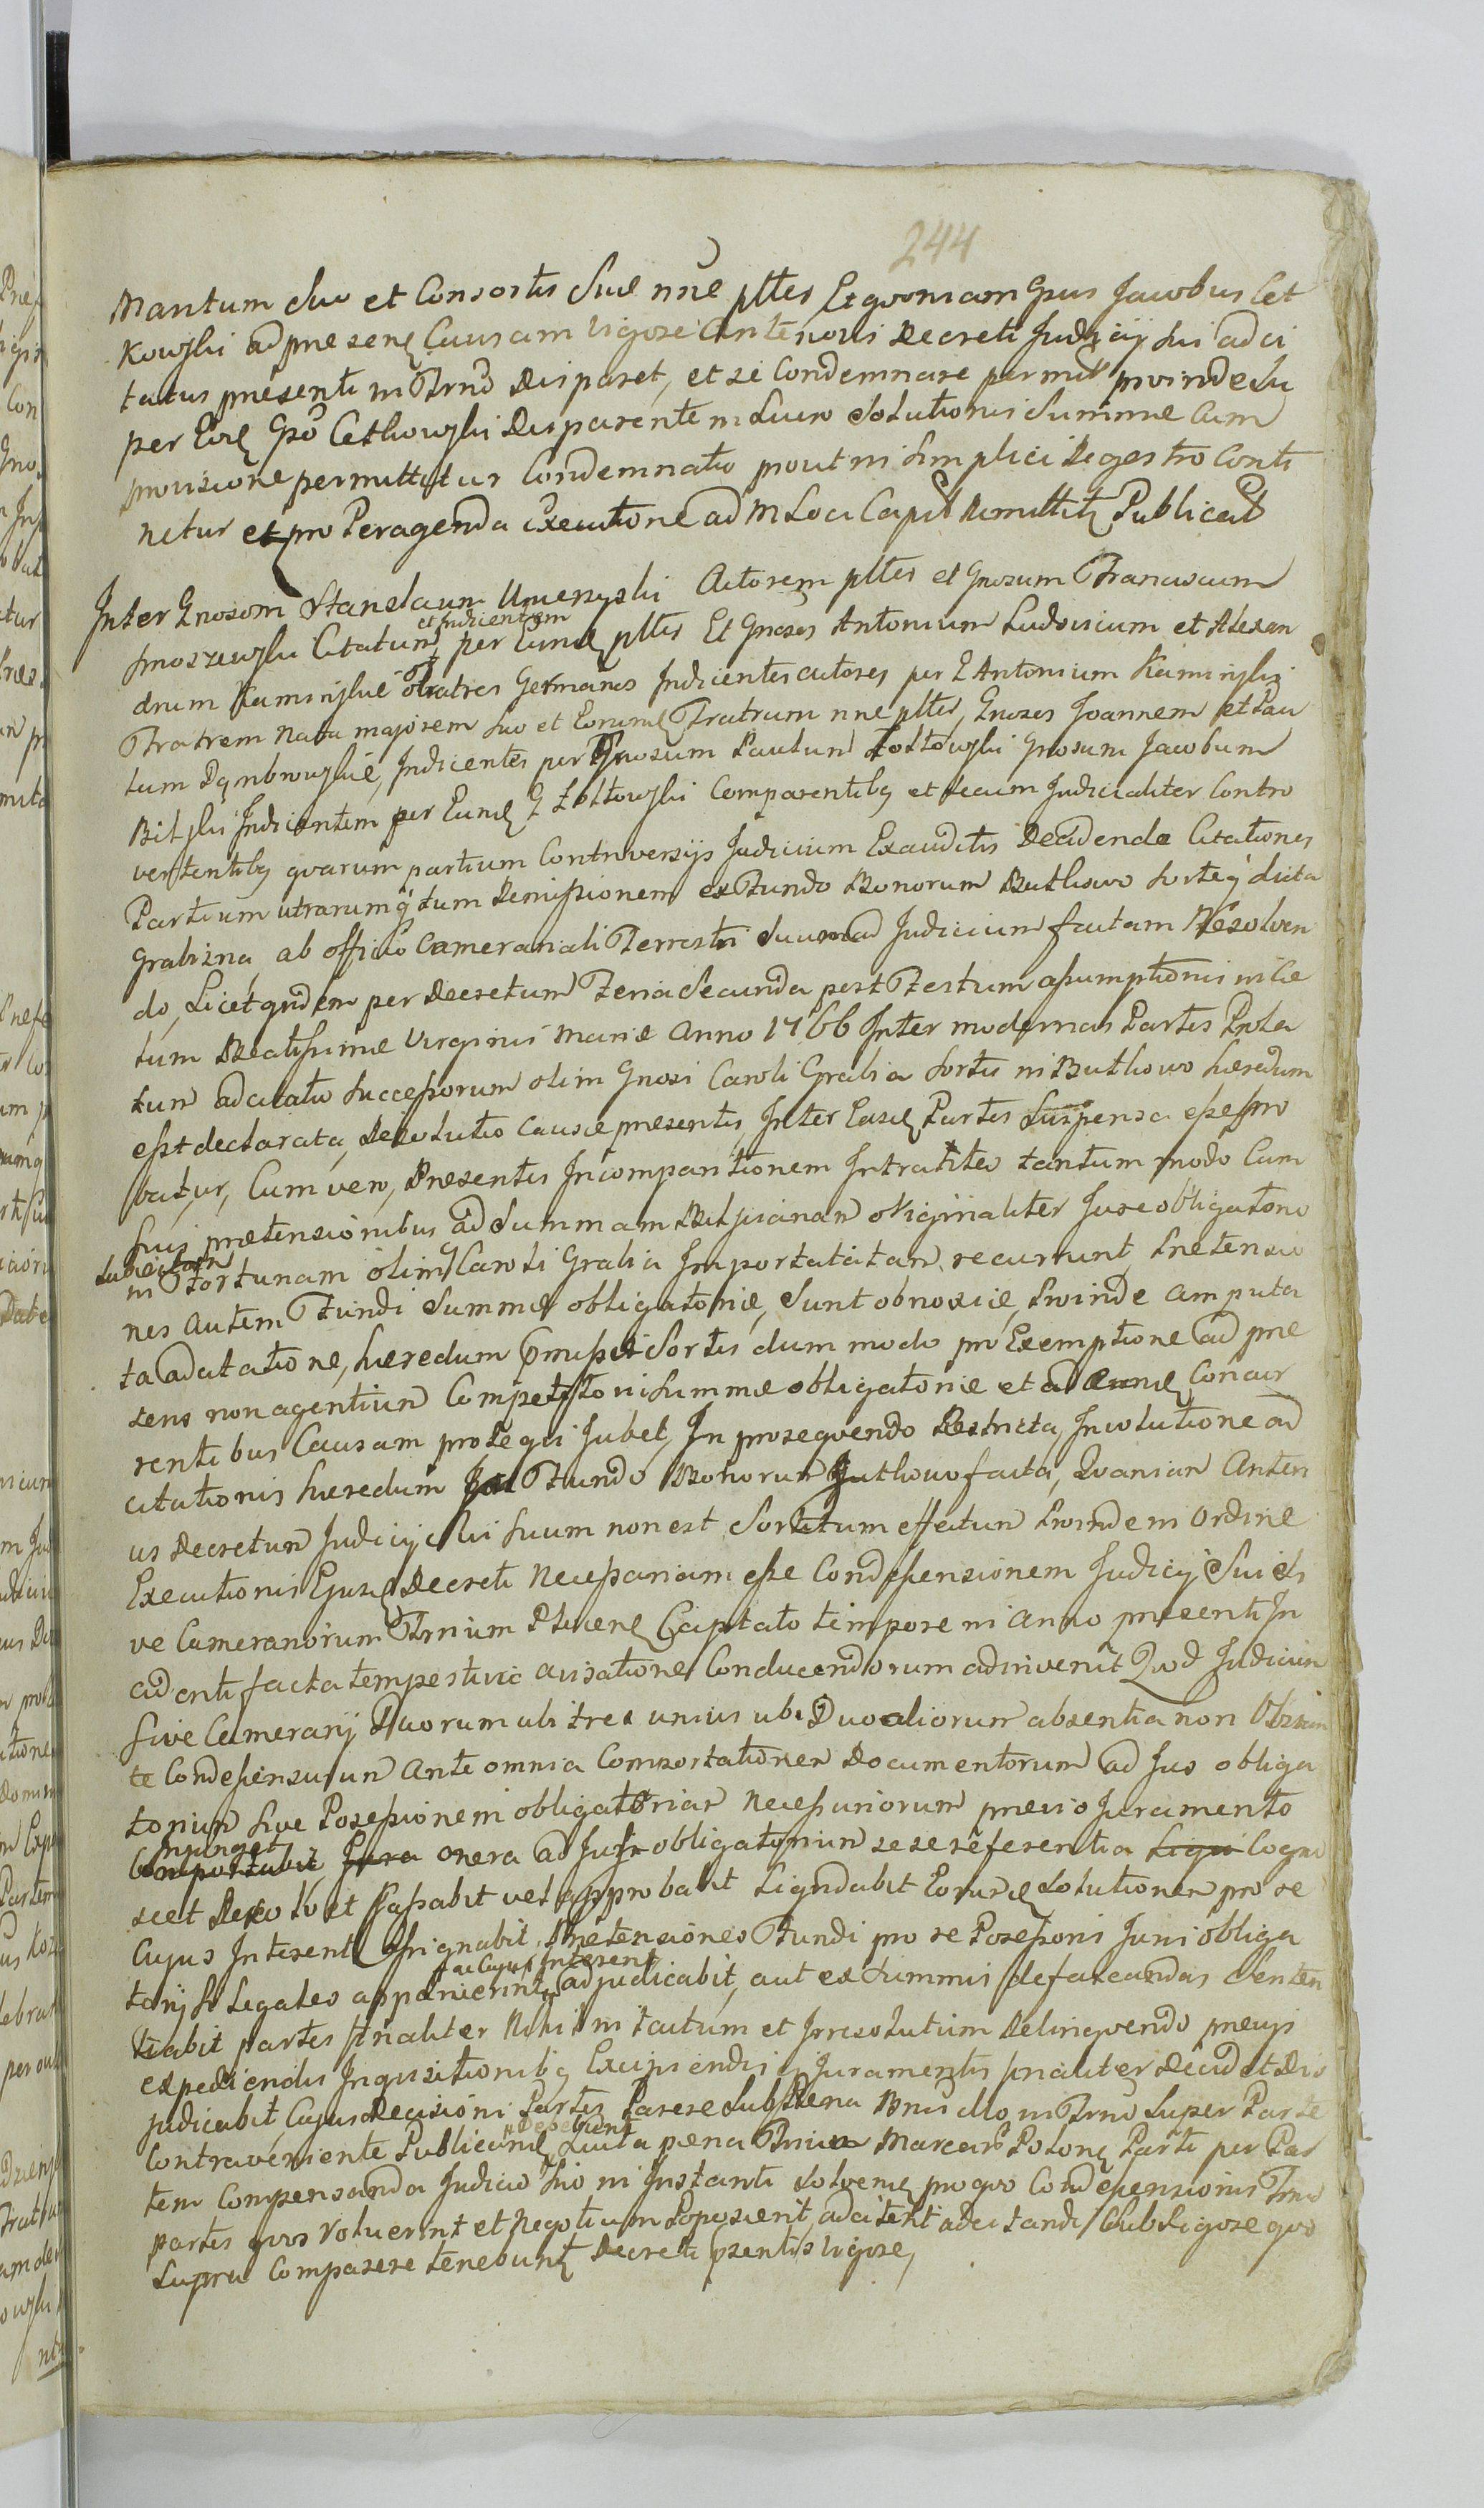 244
Mantum suo et Consortis suæ nne pltes Et qvoniam Gnsus Jacobus Cet
kowski ad præsenz Causam vigore Anterioris Decreti Judicij sui adci
tatus præsenti in Trno Disparet, et se Condemnare permit proinde su
per Eodz Gso Cetkowski Disparente in Lucro Solutionis Summæ Cum
provisione permittitur Condemnatio prout in simplici Regestro Conti
netur et pro Peragenda Executione ad M Loci Capit Remittitz Publicat
Inter Gnosom Stanislaum Umienski Actorem pltes et Gnosum Franciscum
Smoszewski Citatum et Indicentem per Eundz pltes Et Gnosos Antonium Ludovicum et Alexan
drum Kaminskie Fratres Germanos Indicentes actores per G Antonium Kaminski
Fratrem natu majorem suo et Eorumdz Fratrum nne pltes, Gnosos Joannem et Pau
lum Dąmbrowskie, Indicentes per Gnosum Paulum Zołtowski Gnosum Jacobum
Bilski Indicentem per Eundz G Zołtowski Comparentibq et secum Judicialiter Contro
vertentibq qvarum partium Controversijs Judicium Exauditis Decidendo Citationes
Partium utrarumq tum Remissionem ex Fundo Bonorum Rutkowo sorteq dicta
Grabizna, ab officio Camerariali Terrestri suum ad Judicium factam Resolven
do, Licet qvidem per Decretum Feria Secunda post Festum assumptionis in Cæ
lum Beatissimæ Virginis Mariæ Anno 1766 Inter modernas Partes Prola
tum adcitatio Successorum olim Gnosi Caroli Grabia Sortis in Rutkowo hæredum
est declarata, Resolutio Causæ præsentis, Inter Easdz Partes Suspensa esse pro
batur, Cum vero, Præsentis Incomparitionem Intratiteo tantum modo Cum
suis prætensionibus ad Summam originaliter Jure obligatorio
in subiectam Fortunam olim G Caroli Grabia Importatam recurrunt, Prætensio
nes autem Fundi Summæ obligatoriæ, Sunt obnoxiæ, Proinde amputa
ta adcitatione, hæredum præmissæ Sortis dum modo pro Exemptione ad præ
sens non agentium Competitoris Summæ obligatoriæ et ad Eandz Concur
rentibus Causam proseqvi Jubet, In proseqvendo Restricta, Involutione ad
citationis hæredum Fundo Bonorum Rutkowo facta, Qvoniam Anteri
us Decretum Judicij sui suum non est Sortitum effectum Proinde in Ordine
Executionis Ejusdz Decreti Necessariam esse Condessensionem Judicij Sui Si
ve Camerariorum Captato tempore in Anno præsenti In
ad enti facta tempestive avisatione Conducendorum adinvenit Qvod Judicium
sive Camerarij Duorum ubi tres unius ubi Duo aliorum absentia non Obstan
te Condessensurum Ante omnia Comportationem Documentorum ad Jus obliga
torium sive Possessionem obligatoriam necessariorum prævio Juramento
Injunget onera ad Jus obligatorium sese referentia Cogno
scet et Cassabit vel approbabit Liqvidabit Eorumdz Solutionem pro re
Cujus Intererit Assignabit, Prætensiones Fundi pro re Possessoris Juri obliga
torij si Legales apparuerint ac Cujus Intererit adjudicabit, aut ex Summis defalcandas Senten
tiabit partes finaliter Nihil intactum et Irresolutum Relinqvendo prævijs
expediendis Inqvisitionibq Excipiendis Juramentis finaliter Decidet Dis
judicabit, Cujus Decisioni Partes Parere Sub Pæna Bnis illo in Trno Super Parte
Contraveniente Publicandz Debebunt Luita pæna Trium Marcarum Polonz Parti per Par
tem Compensanda Judicio suo in Instanti Solvendz pro qvo Condessensionis Trno
partes qvos voluerint et Negotium Poposcerit, adcitent adcitandi Sub Rigore qvo
Supra Comparere tenebuntz Decreti præntis vigore,